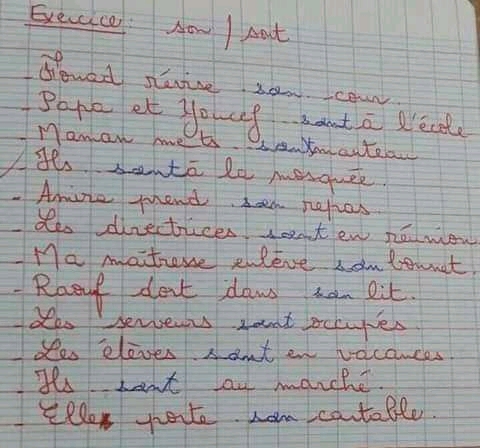 Exercice : son / sont
- Fouad révise son cour.
- Papa et Youcef sont à l'école
- Maman mets sont manteau
- Ils sont à la mosquée.
- Amira prend son repas.
- Les directrices sont en réunion
- Ma maîtresse enlève son bonnet.
- Raouf dort dans son lit.
- Les serveurs sont occupés.
- Les élèves sont en vacances.
- Ils sont au marché.
- Elle porte son cartable.